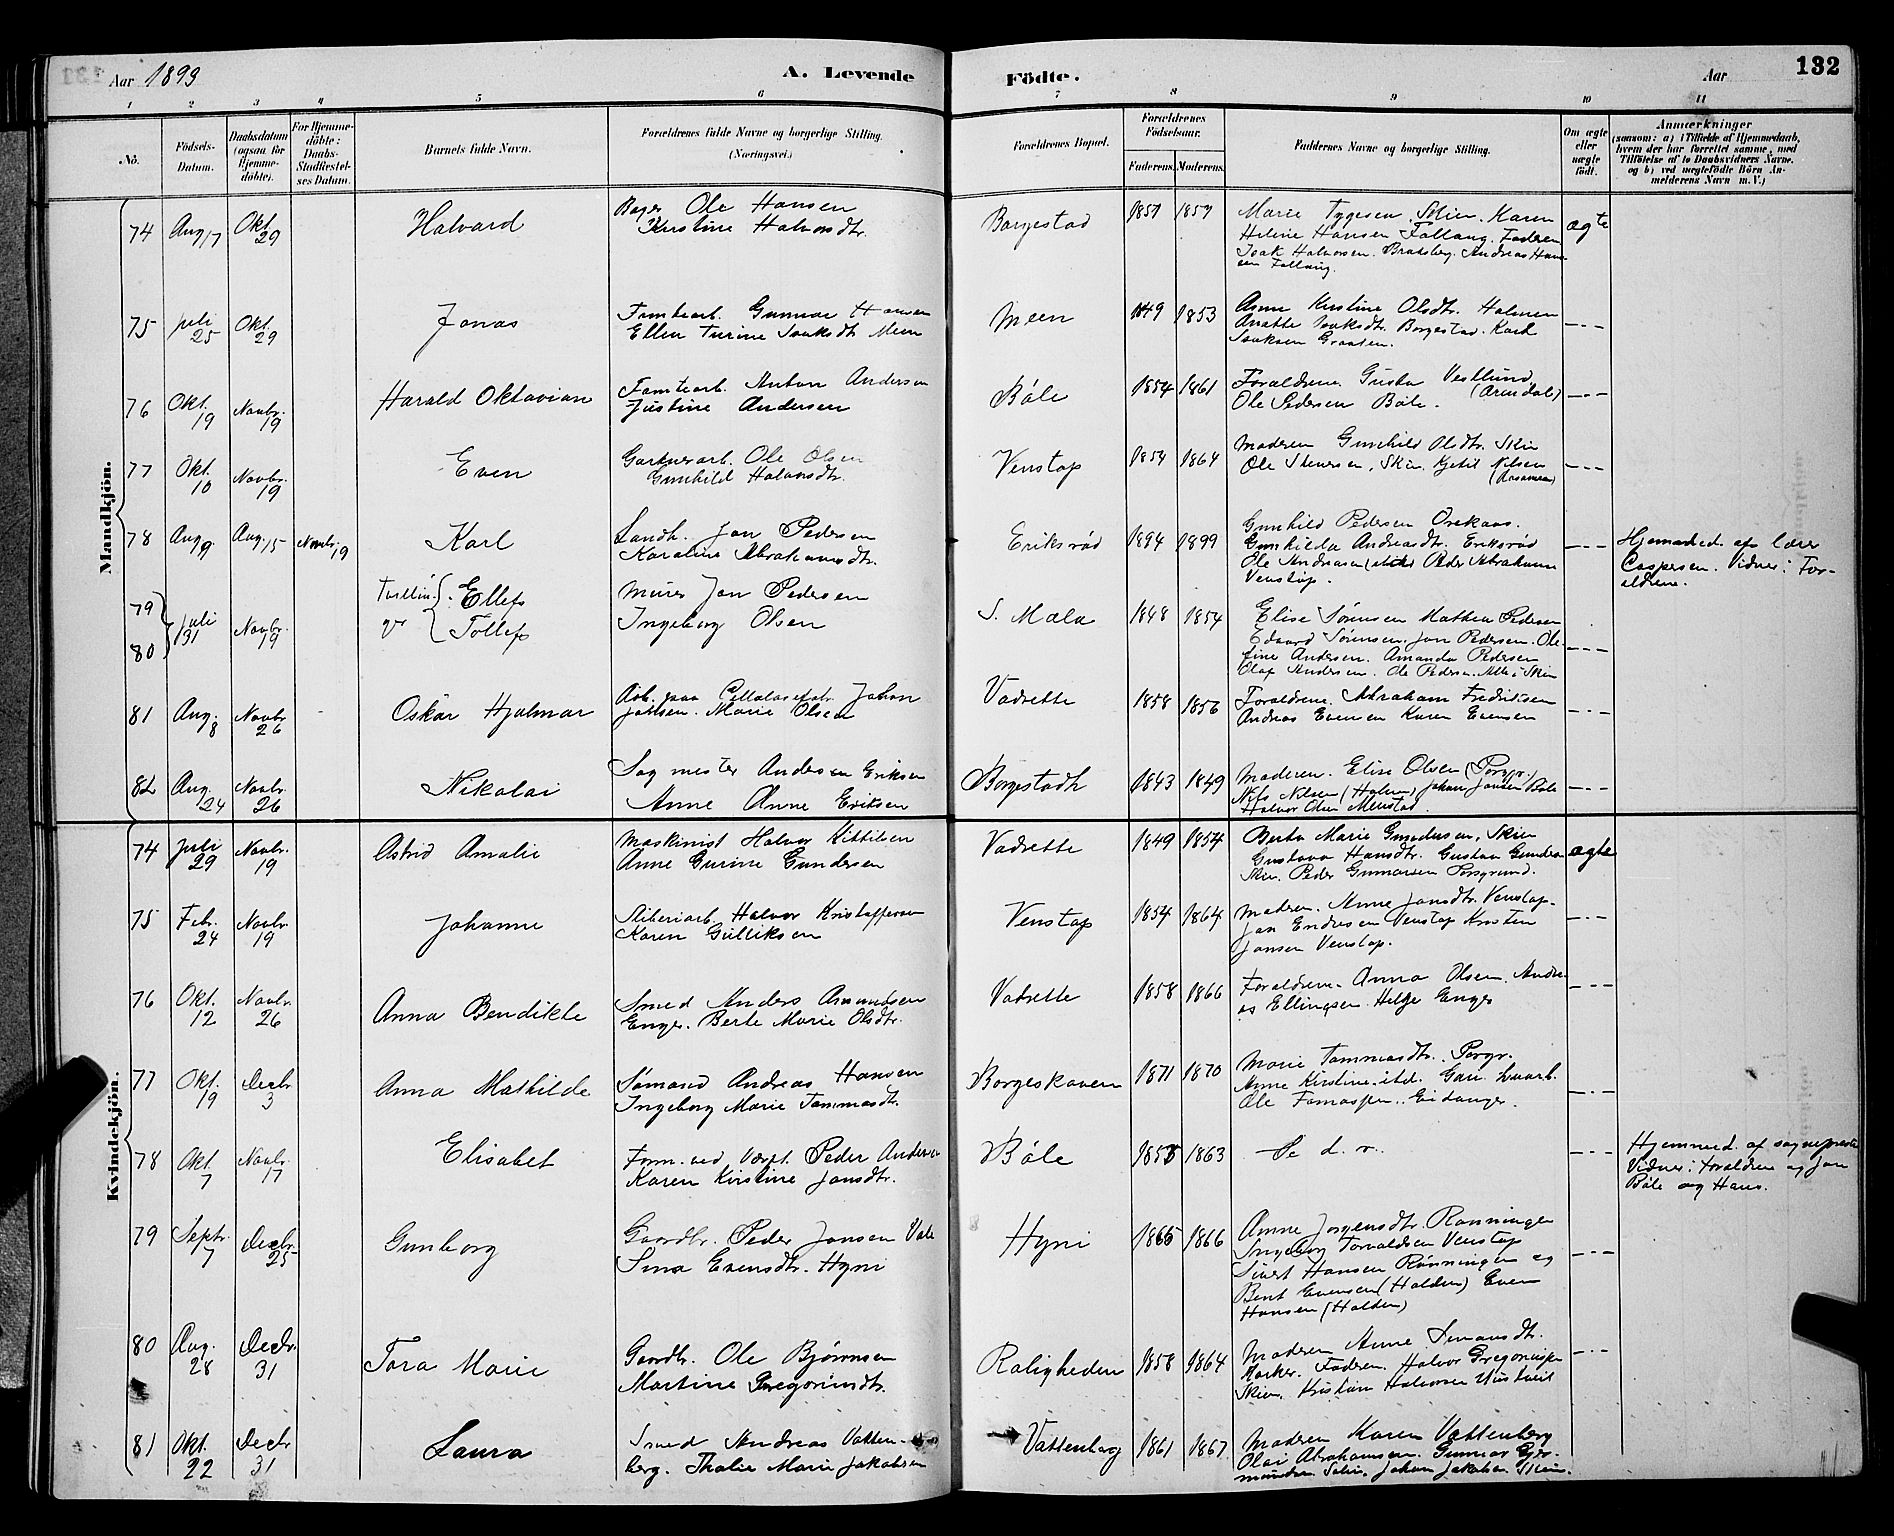 Aar 1893
A. Levende
Födte.
Aar
132
1 2 3 4 5 6 7 8 9 10 11
No.
Födsels-
Datum.
Daabsdatum
(ogsaa for
Hjemme-
döbte).
For Hjemme-
döbte:
Daabs-
Stadfæstel-
ses Datum.
Barnets fulde Navn.
Forældrenes fulde Navne og borgerlige Stilling.
(Næringsvei.)
Forældrenes Bopæl.
Forældrenes
Födselsaar.
Faderens. Moderens.
Faddernes Navne og borgerlige Stilling.
Om ægte
eller
uægte
födt.
Anmærkninger
(saasom: a) i Tilfælde af Hjemmedaab,
hvem der har forrettet samme, med
Tilföielse af to Daabsvidners Navne.
og b) ved uægtefödte Börn An-
melderens Navn m. V.)
Mandkjön.
74 Aug 17 Okt. 29 Halvard
Ole Hansen
Kirstine Halvorsdtr.
Borgestad 1857 1857
Marie Tygesen Skien. Karen
Heline Hansen Follaug. Faderen
Isak Halvorsen. Bratsberg. Andreas Han-
sen Follaug.
ægte
75 juli 25 Okt. 29 Jonas
Tomtearb. Gunnar Hansen
Ellen Turine Isaksdtr. Meen
Meen 1849 1853
Anne Kirstine Olsdtr. Holmen
Anette Isaksdtr. Borgestad. Karl
Isaksen Graaten.
76 Okt. 19 Novbr. 19 Harald Oktavian
Tomtearb. Anton Andersen
Justine Andersen
Bøle 1854 1861
Forældrene. Gusta Vestlund
(Arendal)
Ole Pedersen Bøle.
77 Okt. 10 Novbr. 19 Even
Gartnerarb. Ole Olsen
Gunhild Halvorsdtr.
Venstøp 1854 1864
Moderen Gunhild Olsdtr. Skien
Ole Stenersen, Skien. Kjetil Nilsen
78 Aug 9 Aug. 15 Novbr. 19 Karl
Landh. Jon Pedersen
Karoline Abrahamsdtr.
Eriksrød 1894 1899
Gunhild Pedersen Orekaas.
Gunhilda Andreasdtr. Eriksrød
Ole Andreasen Peder Abrahamsen
Venstøp.
Hjemmed. af lærer
Caspersen. Vidner: For-
ældrene.
79
80 juli 31 Novbr. 19
Tvillin-
ger
Ellef
Tollef
Murer Jon Pedersen
Ingeborg Olsen
S. Mæla 1848 1854
Elise Sørensen Mathea Pedersen
Edvard Sørensen. Jon Pedersen. Ole-
fine Andersen. Amanda Pedersen
Olaf Andersen. Ole Pedersen. Alle i Skien
81 Aug. 8 Novbr. 26 Oskar Hjalmar
Arb. paa Cellulosefabr. Johan
Marie Olsen
Vadrette 1858 1856
Forældrene. Abraham Fredriksen
Andreas Evensen Karen Evensen
82 Aug. 24 Novbr. 26 Nikolai
Sagmester Andersen Eriksen
Anne Anne Eriksen
Borgestadh 1843 1849
Moderen. Elise Olsen (Porsgr.)
Nils Nilsen (Holmen) Johan Jansen Bøle
Halvor Olsen Menstad.
Kvindekjön.
74 juli 29 Novbr. 19 Astrid Amalie
Maskinist Halvor Kittilsen
Anne Gurine Gundersen
Vadrette 1849 1854
Berta Marie Gundersen, Skien
Gustava Hansdtr. Gustav Gundersen
Skien. Peder Gunnarsen Porsgrund.
ægte
75 Feb. 24 Novbr. 19 Johanne
Sliberiarb. Halvor Kristoffersen
Karen Gulliksen
Venstøp 1854 1864
Moderen. Anne Jonsdtr. Venstøp.
Jon Endresen Venstøp Karsten
Jansen Venstøp.
76 Okt. 12 Novbr. 26 Anna Bendikte
Smed Anders Amundsen
Enger. Berte Marie Olsdtr.
Vadrette 1858 1866
Forældrene. Anna Olsen. Andre-
as Ellingsen. Helge Enger
77 Okt. 19 Decbr. 3 Anna Mathilde
Sømand Andreas Hansen
Ingeborg Marie Tommasdtr.
Borgeskoven 1871 1870
Marie Tommasdtr. Porsgr.
Anne Kirstine
Ole Tomassen. Eidanger.
78 Okt. 7 Novbr. 17 Elisabet
Form. ved Værft. Peder Andersen
Karen Kirstine Jonsdtr.
Bøle 1855 1863
Se d. r.
Hjemmed. af sognepræsten
Vidner: Forældrene og Jon
Bøle og Hans.
79 Septr. 7 Decbr. 25 Gunborg
Gaardbr. Peder Jonsen Vale
Sina Evensdtr. Hyni
Hyni 1865 1866
Anne Jørgensdtr. Rønningen
Ingeborg Torvaldsen Venstøp
Sivert Hansen Rønningen og
Bent Evensen (Halden) Even
Hansen (Halden)
80 Aug. 28 Decbr. 31 Tora Marie
Gaardbr. Ole Bjørnsen
Martine Gregoriusdtr.
Roligheden 1858 1864
Moderen Anne Simonsdtr.
Faderen. Halvor Gregoriussen
Skien. Kristian Halvorsen
81 Okt. 22 Decbr. 31 Laura
Smed Andreas Vatten-
berg. Thalie Marie Jakobsen
Vattenberg 1861 1867
Moderen Karen Vattenberg
Olai Abrahamsen. Gunnar Gjer-
mundsen Skien. Johan Jakobsen Skien.